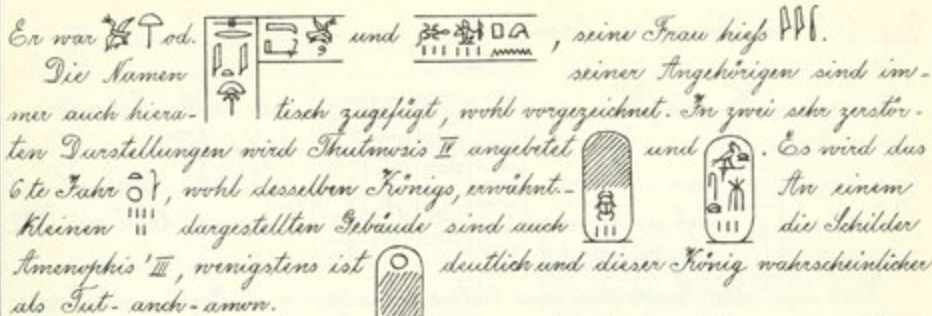 Er war od. und , seine Frau hieß .
Die Namen seiner Angehörigen sind im-
mer auch hiera- tisch zugefügt, wohl vorgezeichnet. In zwei sehr zerstör-
ten Darstellungen wird Thutmosis IV angebetet und . Es wird das
6te Jahr , wohl desselben Königs, erwähnt.- An einem
kleinen dargestellten Gebäude sind auch die Schilder
Amenophis' III, wenigstens ist deutlich und dieser König wahrscheinlicher
als Tut-anch-amon.